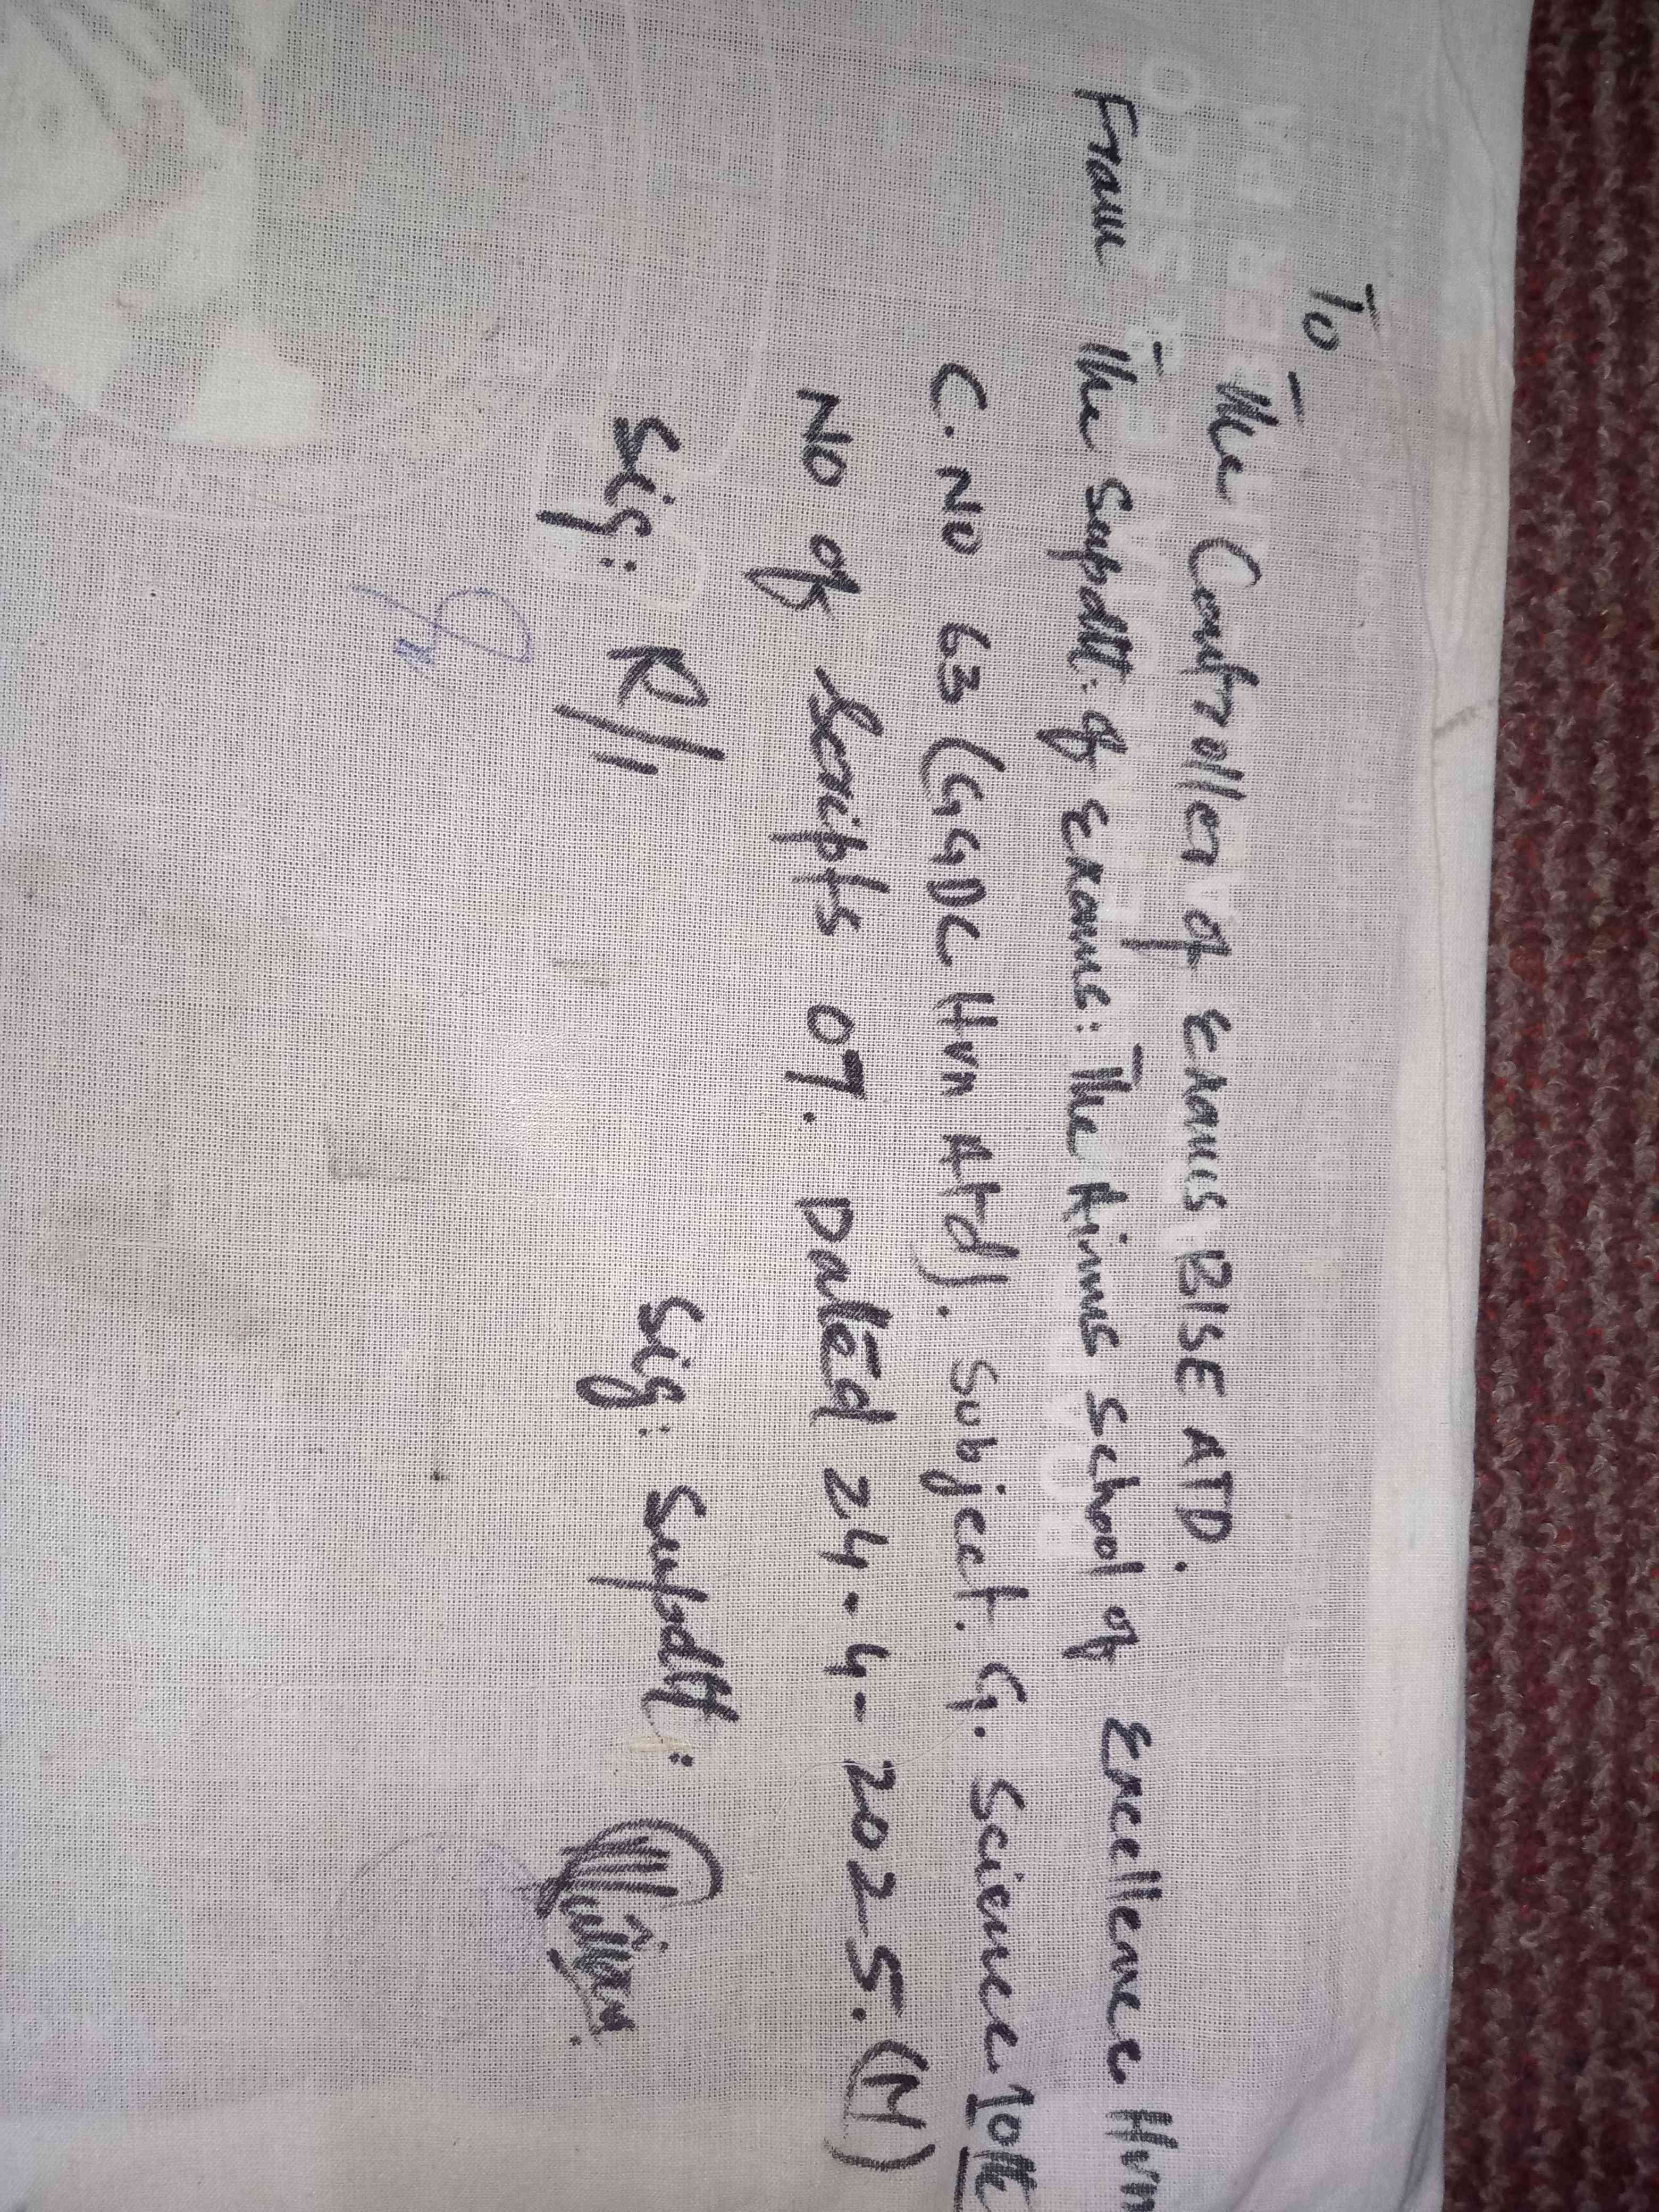 To
The Controller of Exams BISE ATD.
From The Supdtt. of Exams: The Aims School of Excellence Hvn
C. No 63 (GGDC Hvn Atd). Subject. G. Science 10th
No of Scripts 07. Dated 24-4-2025. (M)
Sig: R/I Sig: Supdtt: